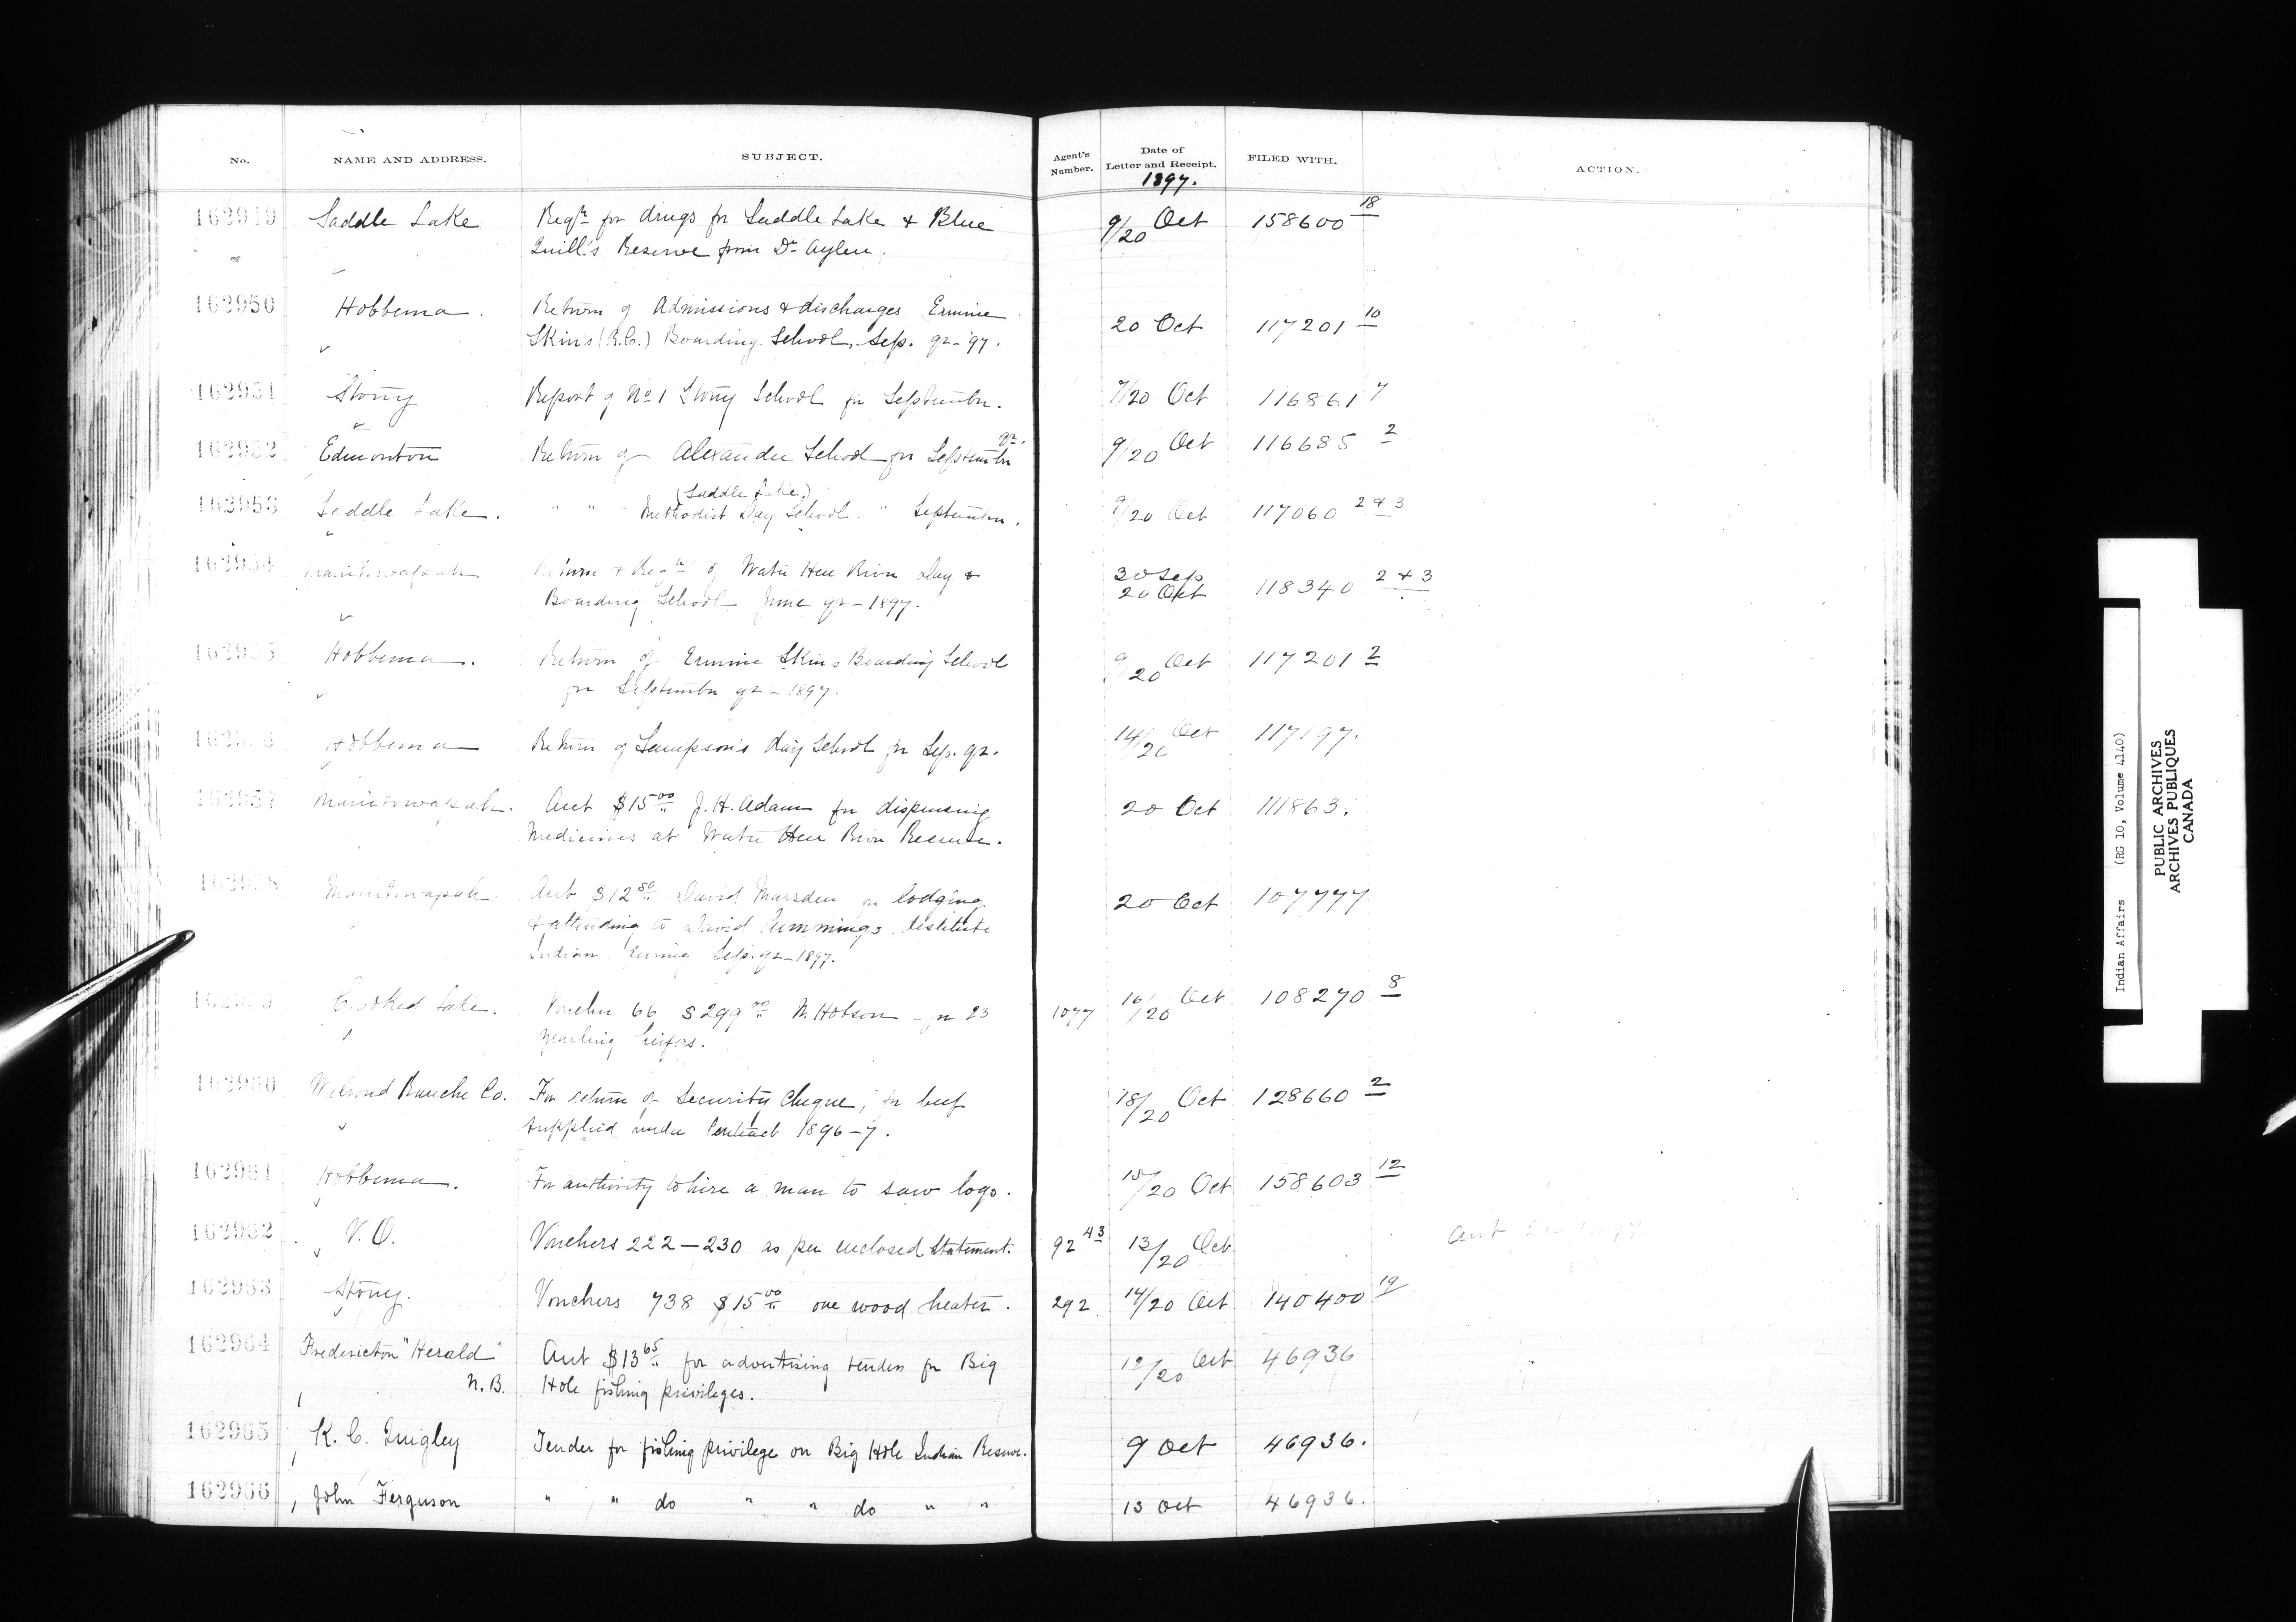 No. NAME AND ADDRESS. SUBJECT. Agent's Number. Date of Letter and Receipt. 1897. FILED WITH. ACTION.
162949 Saddle Lake Reqn for drugs for Saddle Lake & Blue 9/20 Oct 158600 18
Quill's Reserve from Dr Aylen.
162950 Hobbema. Return of Admissions & discharges Ermine 20 Oct 117201 10
Skins (R.C.) Boarding School, Sep. qr-'97.
162951 Stony Report of No 1 Stony School for September. 7/20 Oct 116861 7
162952 Edmonton Return of Alexander School for September qr. 9/20 Oct 116685 2
162953 Saddle Lake. " " (Saddle Lake) Methodist Day School " September. 9/20 Oct 117060 2 & 3
162954 Manitowapah Return & Regr of Water Hen River Day & 30 Sep 20 Oct 118340 2 & 3
Boarding School June qr-1897.
162955 Hobbema. Return of Ermine Skins Boarding School 9/20 Oct 117201 2
for September qr-1897.
162956 Hobbema Return of Sampson's Day School for Sep. qr. 14/20 Oct 117197.
162957 Manitowapah. Acct $15.00 J. H. Adam for dispensing 20 Oct 111863.
Medicines at Water Hen River Reserve.
162958 Manitowapah. Acct $12.50 David Marsden for lodging 20 Oct 107777
& attending to David Cummings, destitute
Indian during Sep. qr-1897.
162959 Crooked Lake. Voucher 66 $299.00 N. Hobson - for 23 1077 16/20 Oct 108270 8
yearling heifers.
162960 Walrond Ranche Co. For return of Security Cheque, for beef 18/20 Oct 128660 2
supplied under Contract 1896-7.
162961 Hobbema. For authority to hire a man to saw logs. 15/20 Oct 158603 12
162962 V. O. Vouchers 222-230 as per enclosed Statement. 92 43 13/20 Oct
162963 Stony. Vouchers 738 $15.00 one wood heater. 292 14/20 Oct 140400 19
162964 Fredericton "Herald" Acct $13.65 for advertising tenders for Big 12/20 Oct 46936
N.B. Hole fishing privileges.
162965 K. C. Quigley Tender for fishing privilege on Big Hole Indian Reserve. 9 Oct 46936.
162966 John Ferguson " " do " " do " " 13 Oct 46936.
Indian Affairs (RG 10, Volume 4140)
PUBLIC ARCHIVES
ARCHIVES PUBLIQUES
CANADA